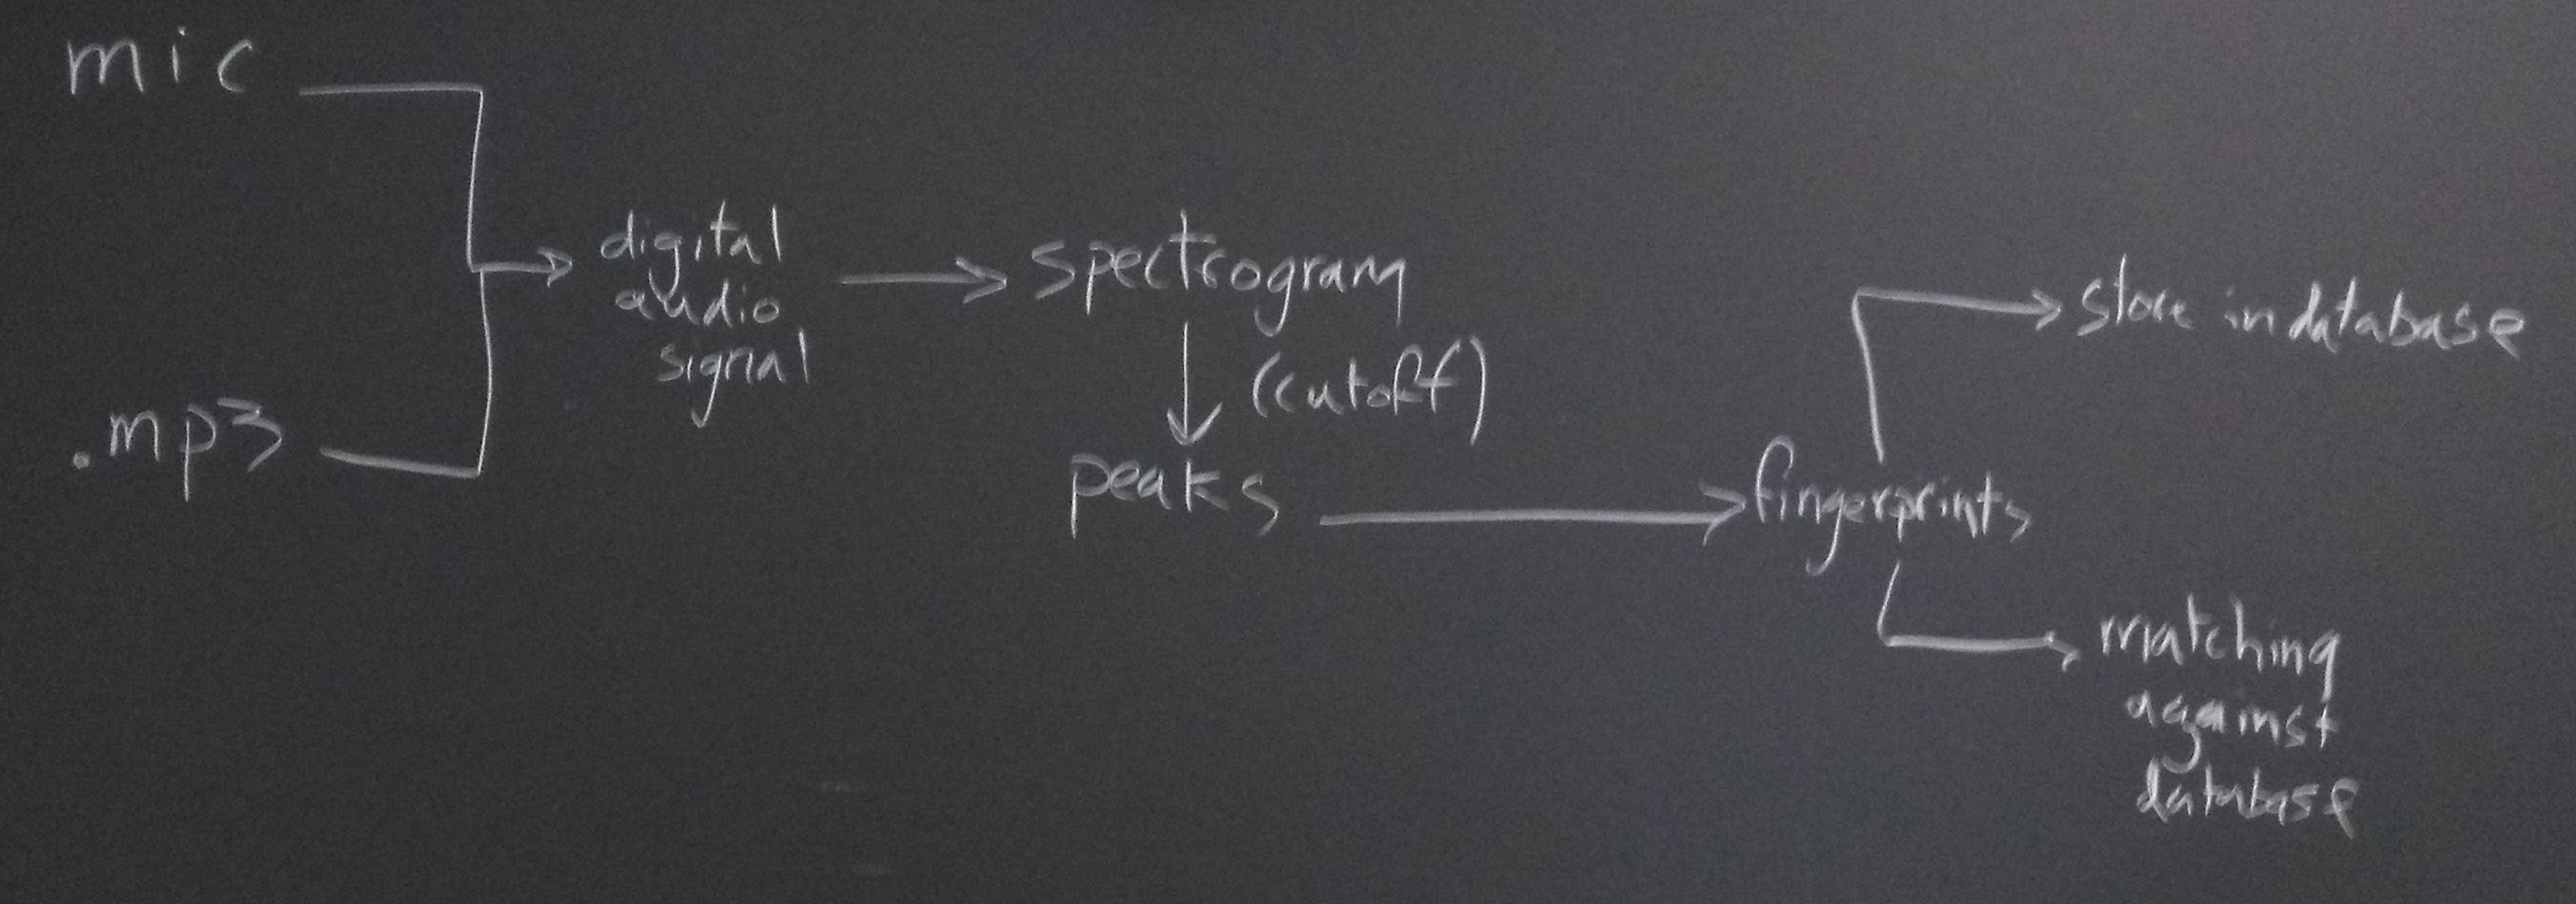 mic
.mp3
digital
audio
signal
spectrogram
(cutoff)
peaks
fingerprints
store in database
matching
against
database